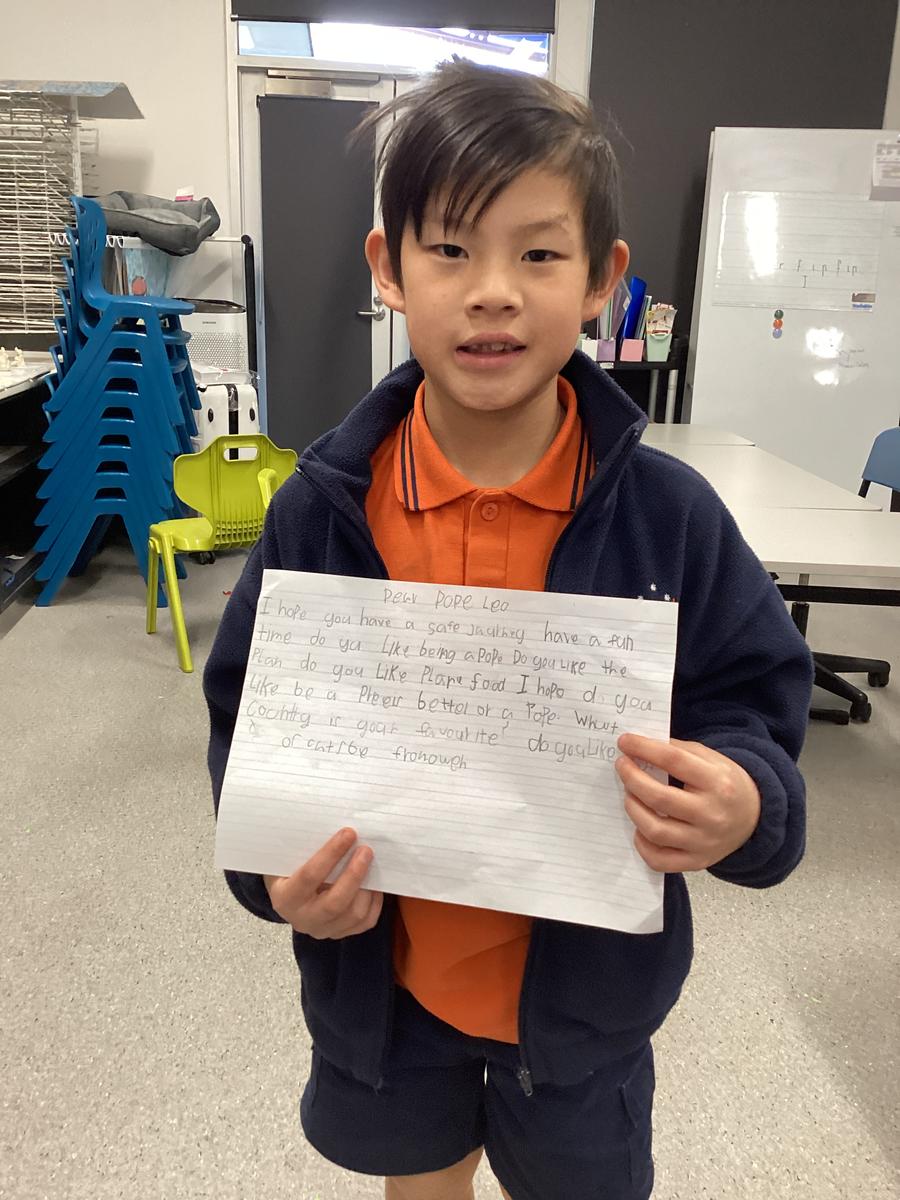 Dear Pope Leo
I hope you have a safe Jauthey have a fun
time do yu Like being a Pope Do you Like the
Plan do you Like Plane food I hope do you
Like be a better or a Pope What
Coohtty is your favourite? do you Like
or